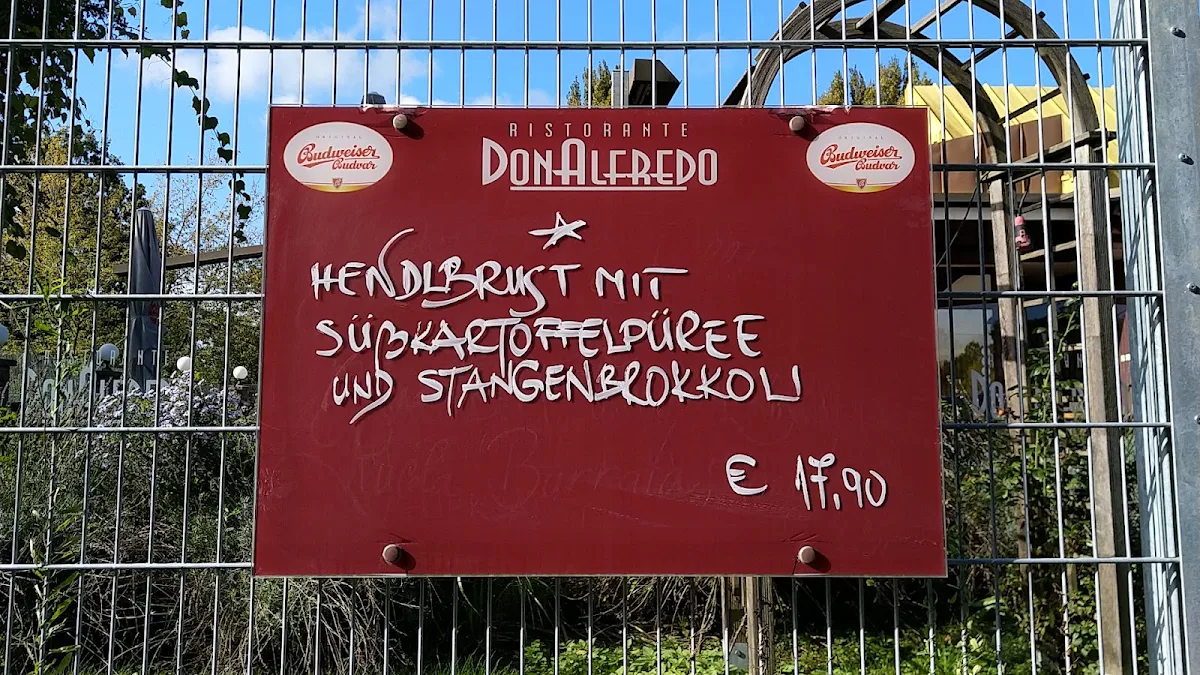 ORIGINAL
Budweiser
Budvar
RISTORANTE
DONALFREDO
ORIGINAL
Budweiser
Budvar
HENDLBRUST MIT
SÜßKARTOFFELPÜREE
UND STANGENBROKKOLI
€ 17,90
DON ALFRED